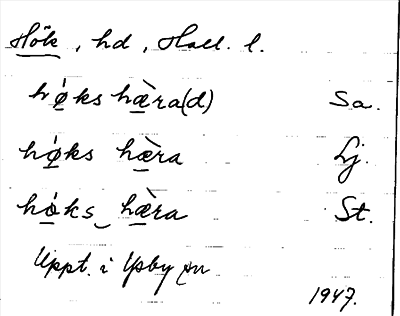 Hök, hd, Hall. l.
hø̀ks hæ̀ra(d) Sa.
hø̀ks hæ̀ra Lj.
hò̲ks‿hæ̀ra St.
Uppt. i Ysby sn
1947.